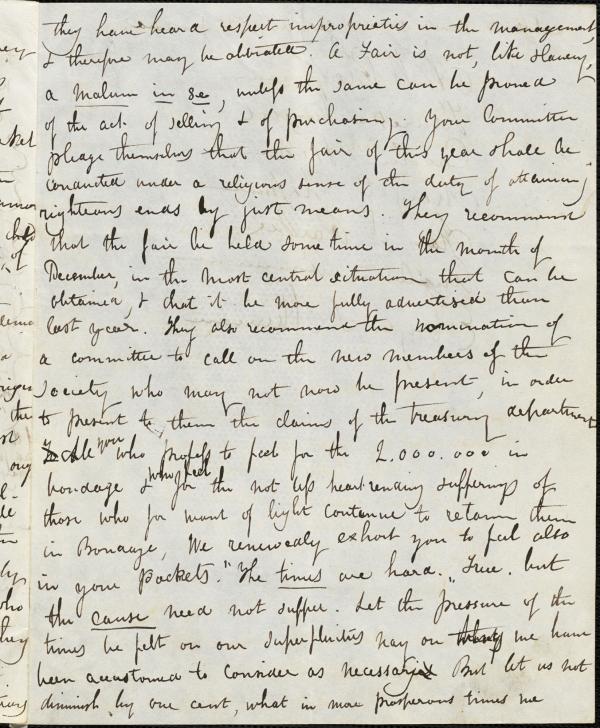 they have heard respect improprieties in the management,
& therefore may be obviated. A Fair is not, like slavery,
a malum in se, unless the same can be proved
of the act of selling & of purchasing. Your Committee
pledge themselves that the fair of this year shall be
conducted under a religious sense of the duty of attaining
righteous ends by just means. They recommend
that the fair be held some time in the month of
December, in the most central situation that can be
obtained, & that it be more fully advertised than
last year. They also recommend the nomination of
a committee to call on the new members of the
Society who may not now be present, in order
to present to them the claims of the treasury department
you who profess to feel for the 2.000.000 in
bondage & who feel for the not less heartrending sufferings of
those who for want of light continue to retain them
in Bondage, We renewedly exhort you to feel also
in your pockets." The times are hard. "True. but
the cause need not suffer. Let the pressure of the
times be felt on our superfluities nay on we have
been accustomed to consider as necessaries But let us not
diminish by one cent, what in more prosperous times we